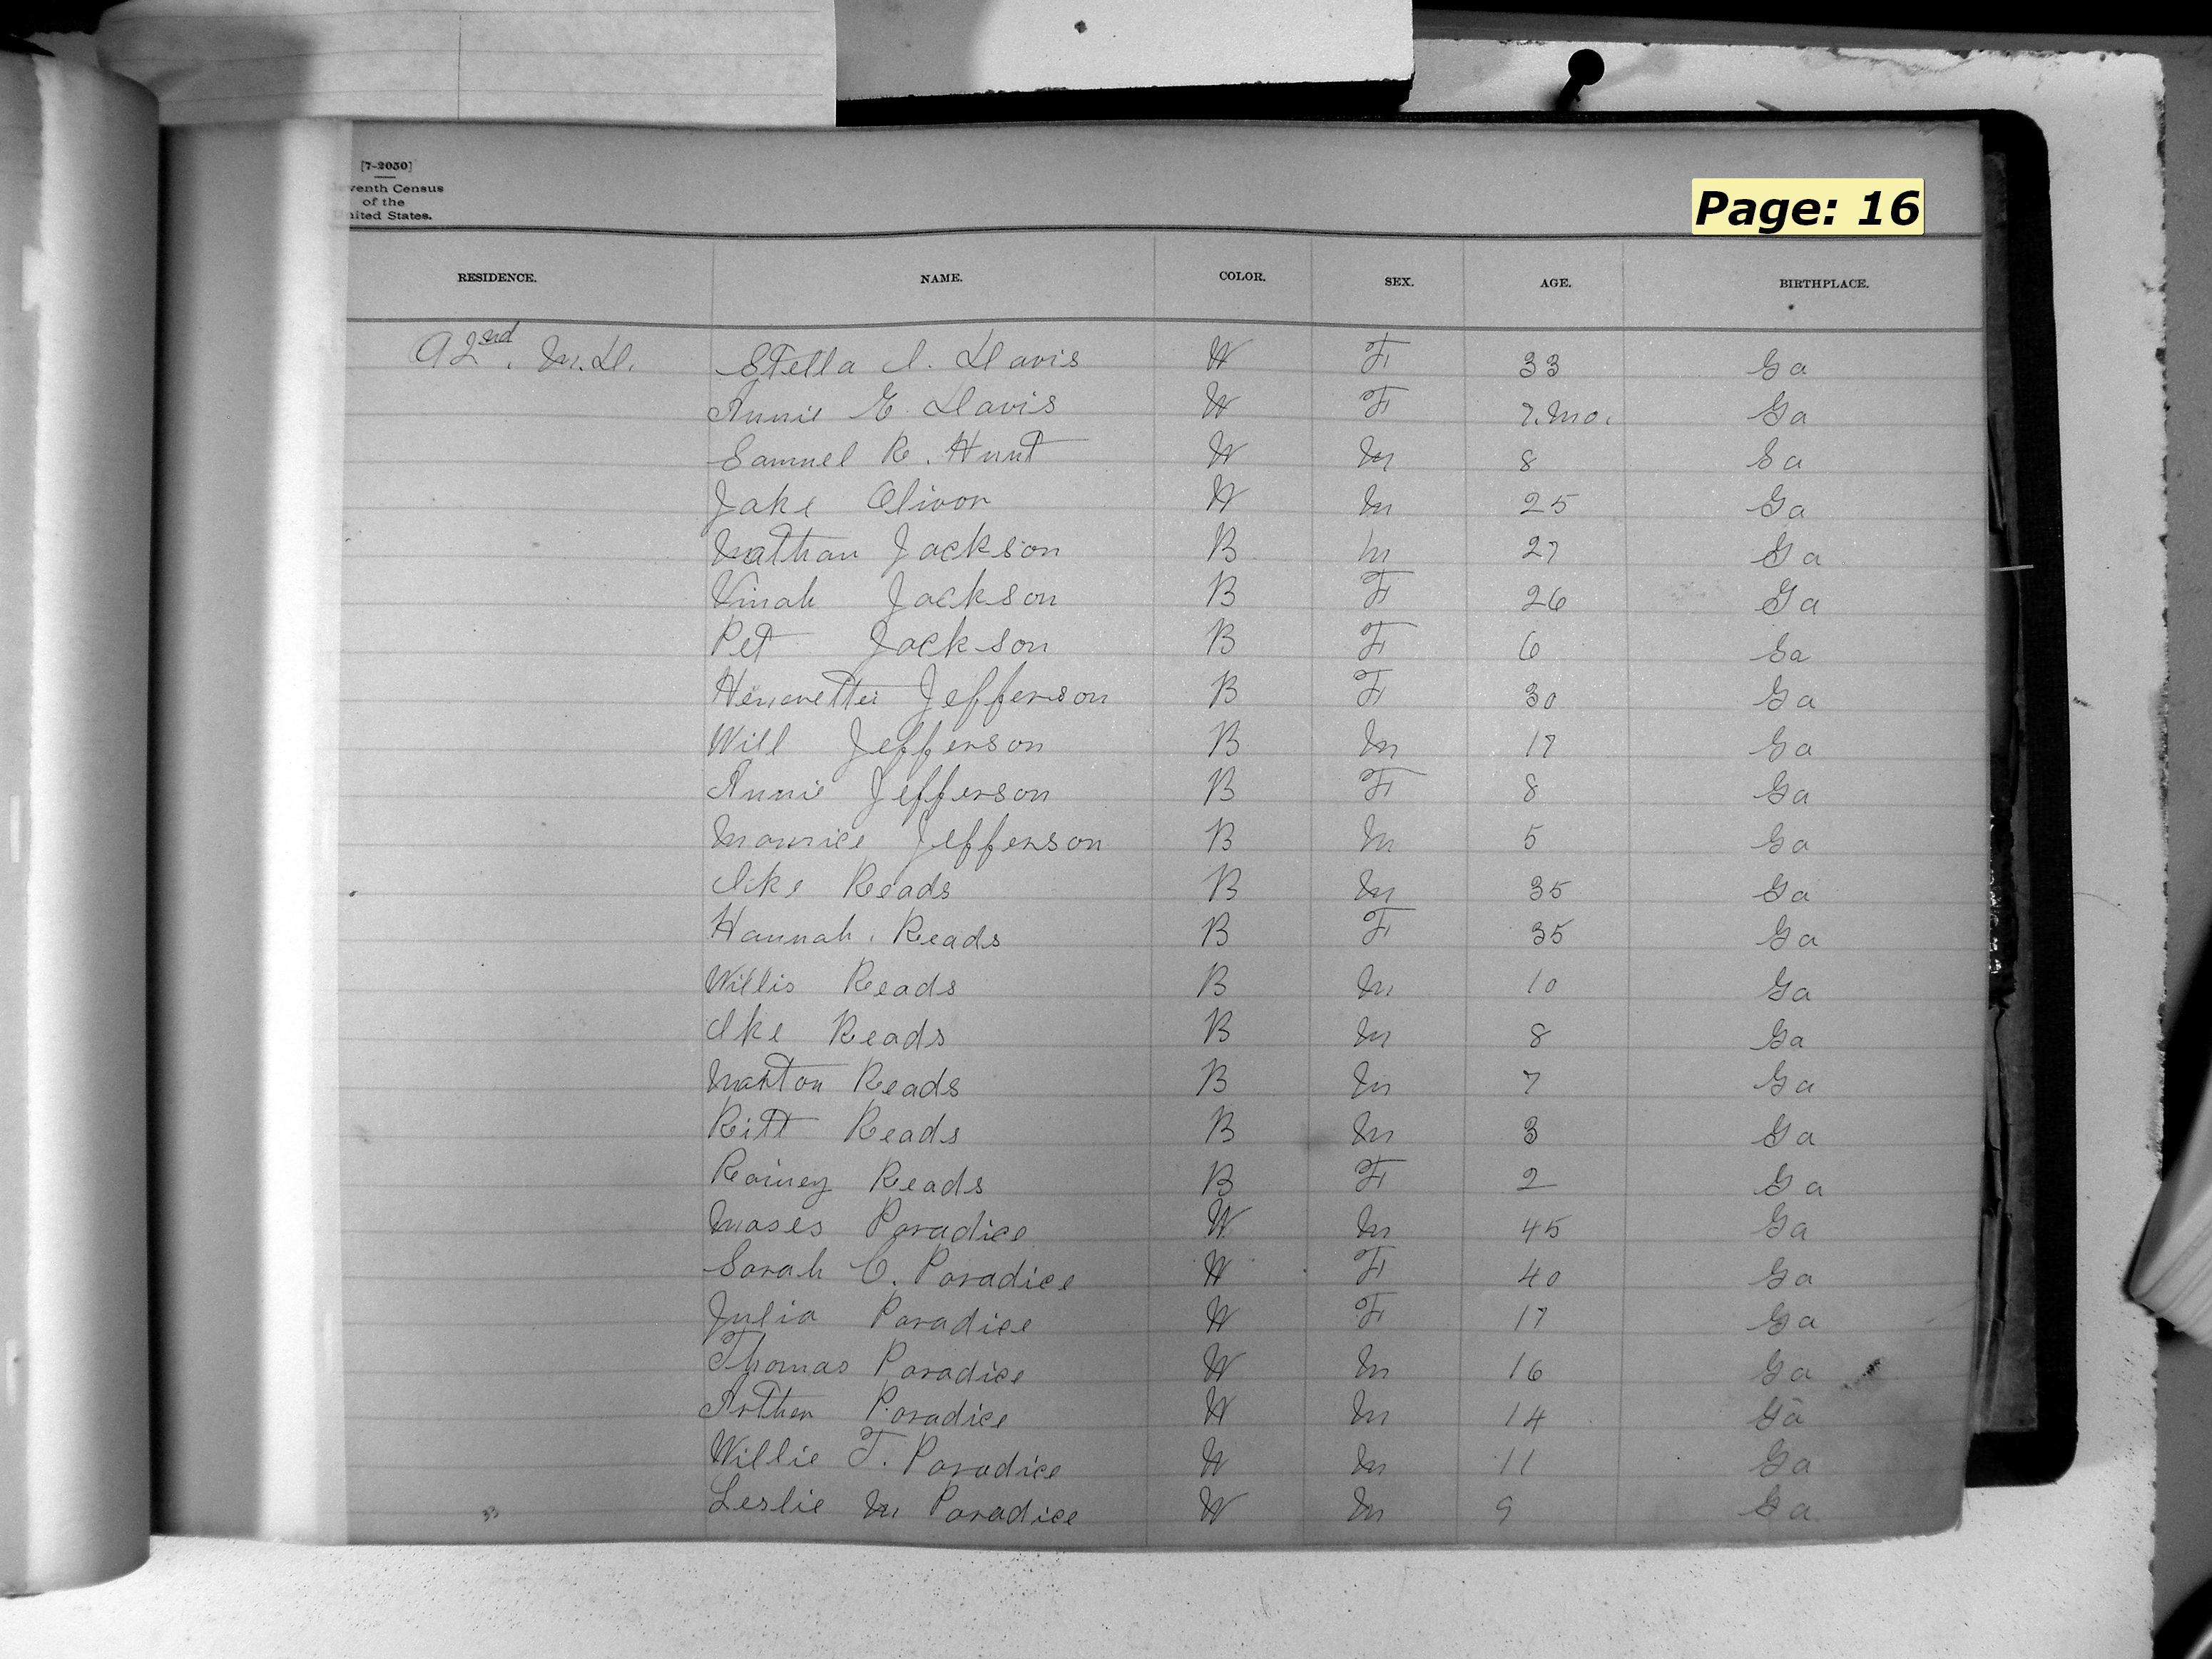 [7-2050]
venth Census
of the
nited States.
Page: 16
RESIDENCE. NAME. COLOR. SEX. AGE. BIRTHPLACE.
92nd. M.D. Stella I. Davis W F 33 Ga
Annie E. Davis W F 7.mo. Ga
Samuel R. Hunt W M 8 Ga
Jake Olivor W M 25 Ga
Nathan Jackson B M 27 Ga
Vinah Jackson B F 26 Ga
Pet Jackson B F 6 Ga
Henoretta Jefferson B F 30 Ga
Will Jefferson B M 17 Ga
Annie Jefferson B F 8 Ga
Mourice Jefferson B M 5 Ga
Ike Reads B M 35 Ga
Hannah Reads B F 35 Ga
Willis Reads B M 10 Ga
Ike Reads B M 8 Ga
Marton Reads B M 7 Ga
Ritt Reads B M 3 Ga
Rainey Reads B F 2 Ga
Moses Paradice W M 45 Ga
Sarah C. Paradice W F 40 Ga
Julia Paradice W F 17 Ga
Thomas Paradice W M 16 Ga
Arther Paradice W M 14 Ga
Willie T. Paradice W M 11 Ga
Leslie M Paradice W M 9 Ga